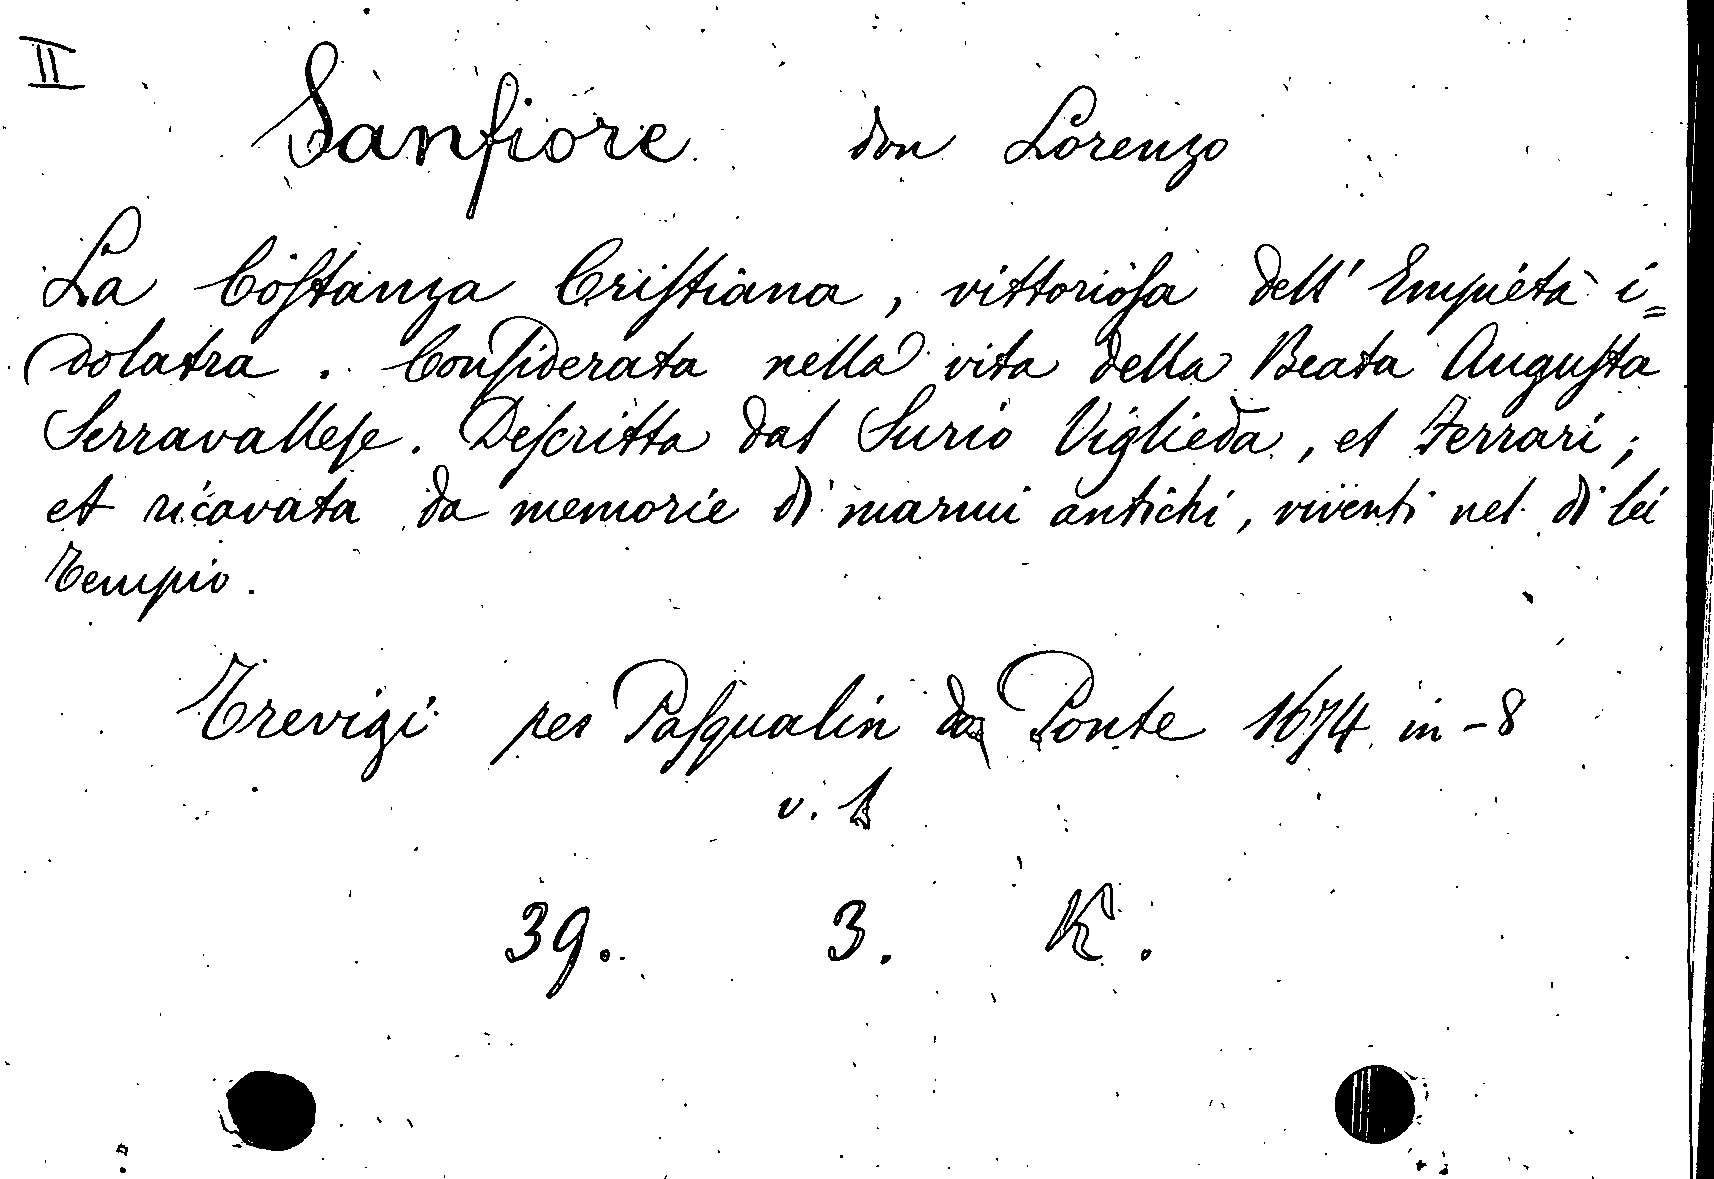 II
Sanfiore don Lorenzo
La Coſtanza Criſtiana, vittorioſa dell' Empietà i=
dolatra. Conſiderata nella vita della Beata Auguſta
Serravalleſe. Deſcritta dal Surio Viglieda, et Ferrari;
et ricavata da memorie di marmi antichi, viventi nel di lei
Tempio.
Trevigi per Paſqualin da Ponte 1674 in-8
v. 1
39. 3. K.